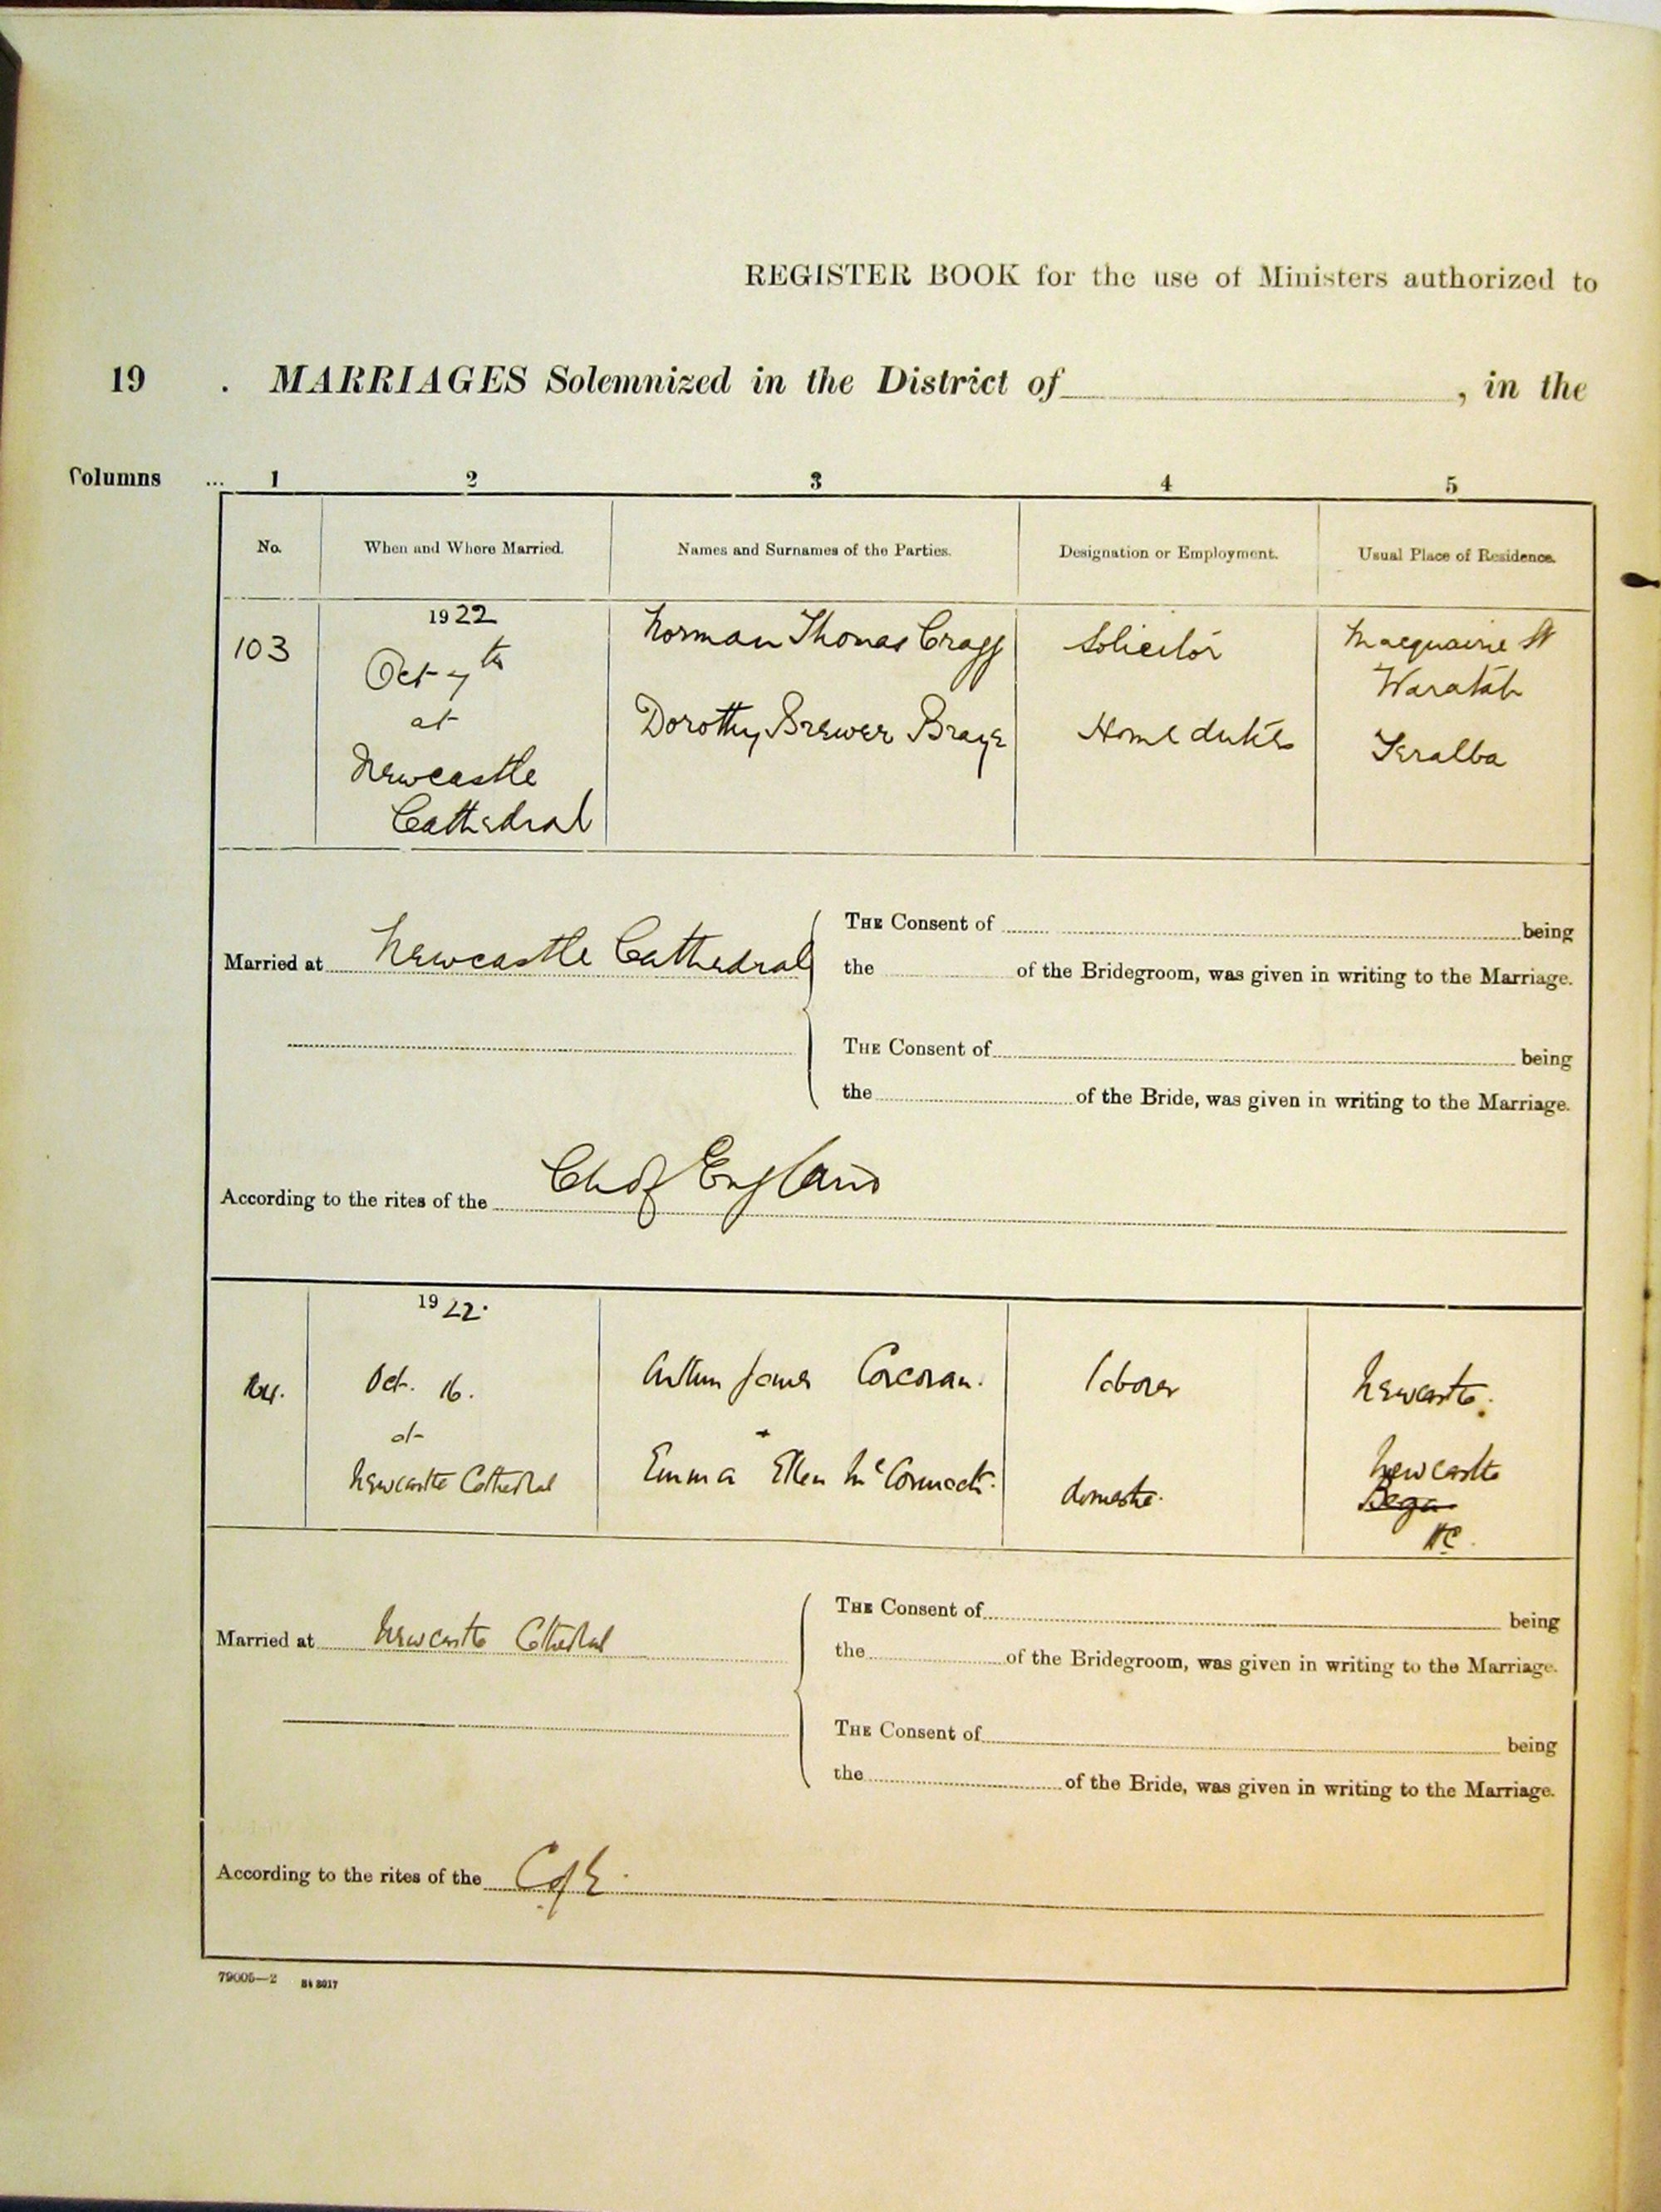 REGISTER BOOK for the use of Ministers authorized to
19 . MARRIAGES Solemnized in the District of , in the
Columns ... 1 2 3 4 5
No. When and Where Married. Names and Surnames of the Parties. Designation or Employment. Usual Place of Residence.
1922
103 Norman Thomas Cragg Solicitor Macquarie St
Oct 7th Waratah
at Dorothy Brewer Braye Home duties Teralba
Newcastle
Cathedral
THE Consent of being
Married at Newcastle Cathedral the of the Bridegroom, was given in writing to the Marriage.
THE Consent of being
the of the Bride, was given in writing to the Marriage.
According to the rites of the Ch of England
1922.
104. Oct. 16. Arthur James Corcoran. laborer Newcastle.
at +
Newcastle Cathedral Emma Ellen McCormack. domestic. Newcastle
Bega
Married at Newcastle Cathedral THE Consent of being
the of the Bridegroom, was given in writing to the Marriage.
THE Consent of being
the of the Bride, was given in writing to the Marriage.
According to the rites of the C of E.
79005—2